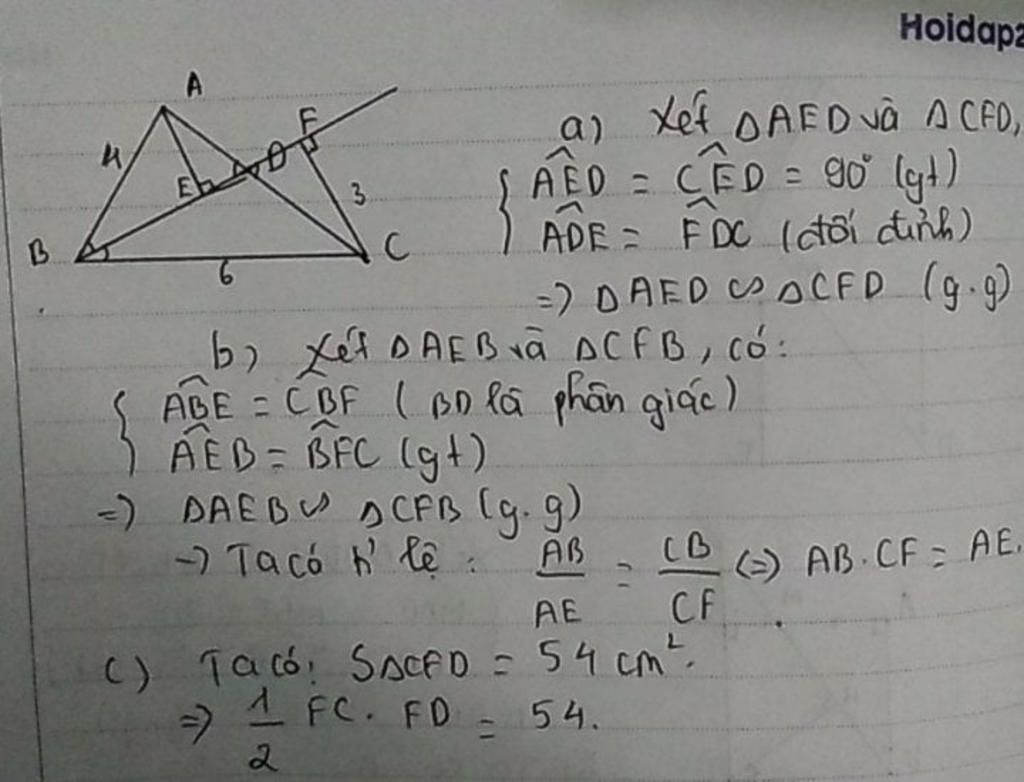 Hoidap2
A
4
F
D
E
3
B
C
6
a) Xét ΔAED và ΔCFD,
{ AÊD = CÊD = 90° (gt)
AD̂E = FD̂C (đối đỉnh)
=> ΔAED ∽ ΔCFD (g.g)
b) Xét ΔAEB và ΔCFB, có:
{ AB̂E = CB̂F ( BD là phân giác)
AÊB = BF̂C (gt)
=> ΔAEB ∽ ΔCFB (g.g)
-> Ta có tỉ lệ : AB/AE = CB/CF <=> AB.CF = AE.
c) Ta có: SΔCFD = 54 cm².
=> 1/2 FC. FD = 54.